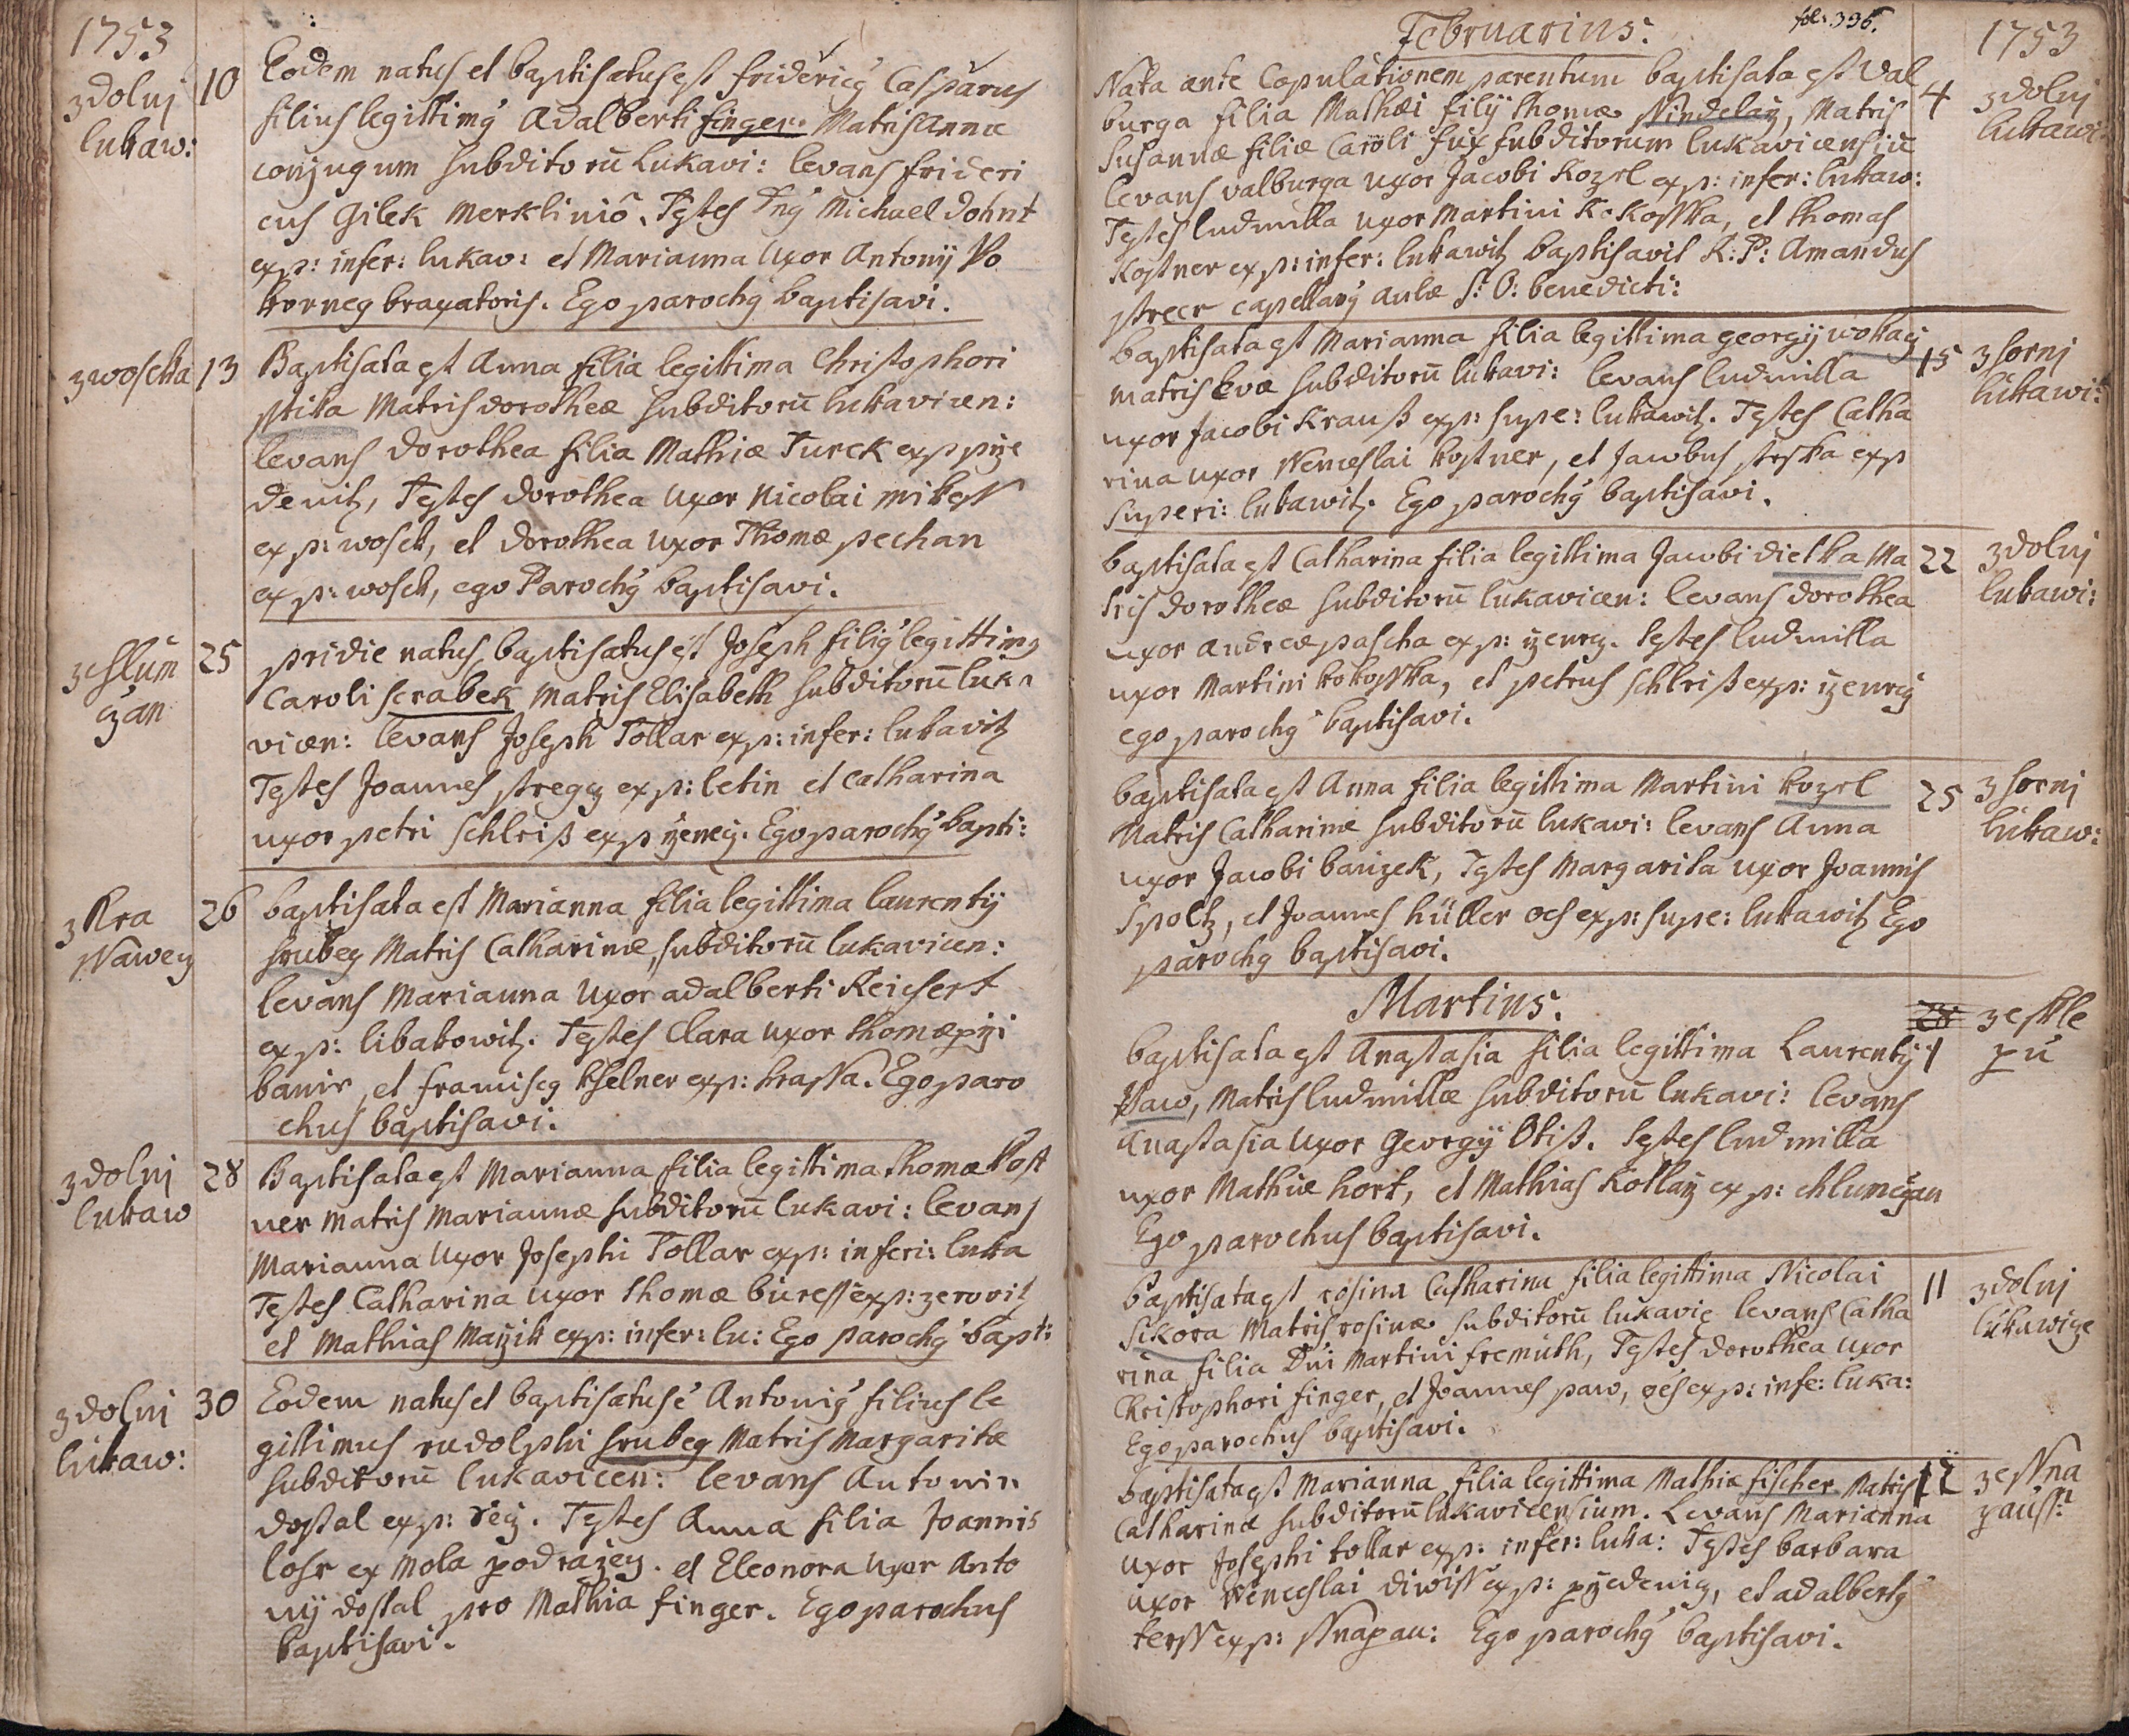 1753
z dolnj
lukaw:
10
Eodem natus et baptisatus est fridericus Casparus
filius legittimus Adalberti finger. Matris Annæ
conjugum subditorū Lukavi: levans frideri
cus Gilek Merklinio. Testes Dnus Michael Dohnt
exp: infer: lukav: et Marianna Uxor Antonij Po
korneg braxatoris. Ego parochus baptisavi.
z woseka
13
Baptisata est Anna filia legittima Christophori
stika Matris dorotheæ subditorū lukavicen:
levans dorothea filia Mathiæ Turek exp pize
denitz, Testes dorothea Uxor Nicolai mikess
exp: wosek, et dorothea uxor Thomæ pechan
exp: wosek, ego Parochus baptisavi.
z chlum
czan
25
pridie natus, baptisatus est Joseph filius legittimus
Caroli scrabek Matris Elisabeth subditorū luka
vicen: levans Joseph Tollar exp: infer: lukavitz
Testes Joannes stregcz exp: letin et Catharina
uxor petri schlriß exp genecz. Ego parochus bapti:
z Kra
ssaweg
26
baptisata est Marianna filia legittima laurentij
hrubeg Matris Catharinæ, subditorū lukavicen:
levans Marianna Uxor adalberti Reichert
exp: libakowitz. Testes Clara uxor thomæ pizi
banir, et franciscg Khelner exp: krassa. Ego paro
chus baptisavi.
z dolnj
lukaw
28
Baptisata est Marianna filia legittima thomæ Kost
ner matris Mariannæ subditorū lukavi: levans
Marianna Uxor Josephi Tollar exp: inferi: luka
Testes Catharina uxor thomæ buress exp: zerovitz
et Mathias Mazik exp: infer: lu: Ego parochus bapt:
z dolnj
lukaw:
30
Eodem natus et baptisatus e Antonius filius le
gittimus rudolphi hrubeg Matris Margaritæ
subditorū lukavicen: levans Antonin
dostal exp: recz. Testes Anna filia Joannis
lohr ex Mola podrazeg. et Eleonora Uxor Anto
nij dostal pro Mathia finger. Ego parochus
baptisavi.
fol: 336.
Februarius.
1753
z dolnj
lukawi:
4
Nata ante Copulationem parentum baptisata est Val
burga filia Mathæi filij thomæ Nindelaz, Matris
susannæ filiæ Caroli fux subditorum lukavicensiū
levans valburga uxor Jacobi Kozrl exp: infer: lukaw:
Testes ludmilla uxor Martini Kokosska, et thomas
Kostner exp: infer: lukawitz baptisavit R: P: Amandus
streer capellanus aulæ S: O: benedicti:
z hornj
lukawi:
15
baptisata est Marianna filia legittima georgij wokacz
matris Evæ subditorū lukavi: levans ludmilla
uxor Jacobi Krauß exp: supe: lukawitz. Testes Catha
rina uxor Wenceslai kostner, et Jacobus strska exp
superi: lukawitz. Ego parochus baptisavi.
z dolnj
lukawi:
22
baptisata est Catharina filia legittima Jacobi dietka Ma
tris dorotheæ subditorū lukavicen: levans dorothea
uxor andreæ pascha exp: gienecz. testes ludmilla
uxor Martini kokosska, et petrus schlriß exp: gienecz
ego parochus baptisavi.
z hornj
lukaw:
25
baptisata est Anna filia legittima Martini kozrl
Matris Catharinæ subditorū lukavi: levans Anna
uxor Jacobi banzek, Testes Margarita uxor Joannis
spoltz, et Joannes hüller oes exp: supe: lukawitz Ego
parochus baptisavi.
Martius.
z eskle
pu
28 1
baptisata est Anastasia filia legittima Laurentij
Paw, Matris ludmillæ subditorū lukavi: levans
Anastasia Uxor Georgij Otiß. testes ludmilla
uxor Mathiæ hort, et Mathias Kollarz exp: chlumczan
Ego parochus baptisavi.
z dolnj
lukawicze
11
baptisata est rosina Catharina filia legittima Nicolai
sikora Matris rosinæ subditorū lukavic levans Catha
rina filia Dni Martini fremuth, Testes dorothea uxor
Christophori finger, et Joannes paw, oes exp: infe: luka:
Ego parochus baptisavi.
z essna
pauss:
12
baptisata est Marianna filia legittima Mathiæ fischer Matris
Catharinæ subditorū lukavicensium. Levans Marianna
uxor Josephi tollar exp: infer: luka: Testes barbara
uxor Wenceslai diwiss exp: przedenicz, et adalbertus
terss exp: ssnapau: Ego parochus baptisavi.